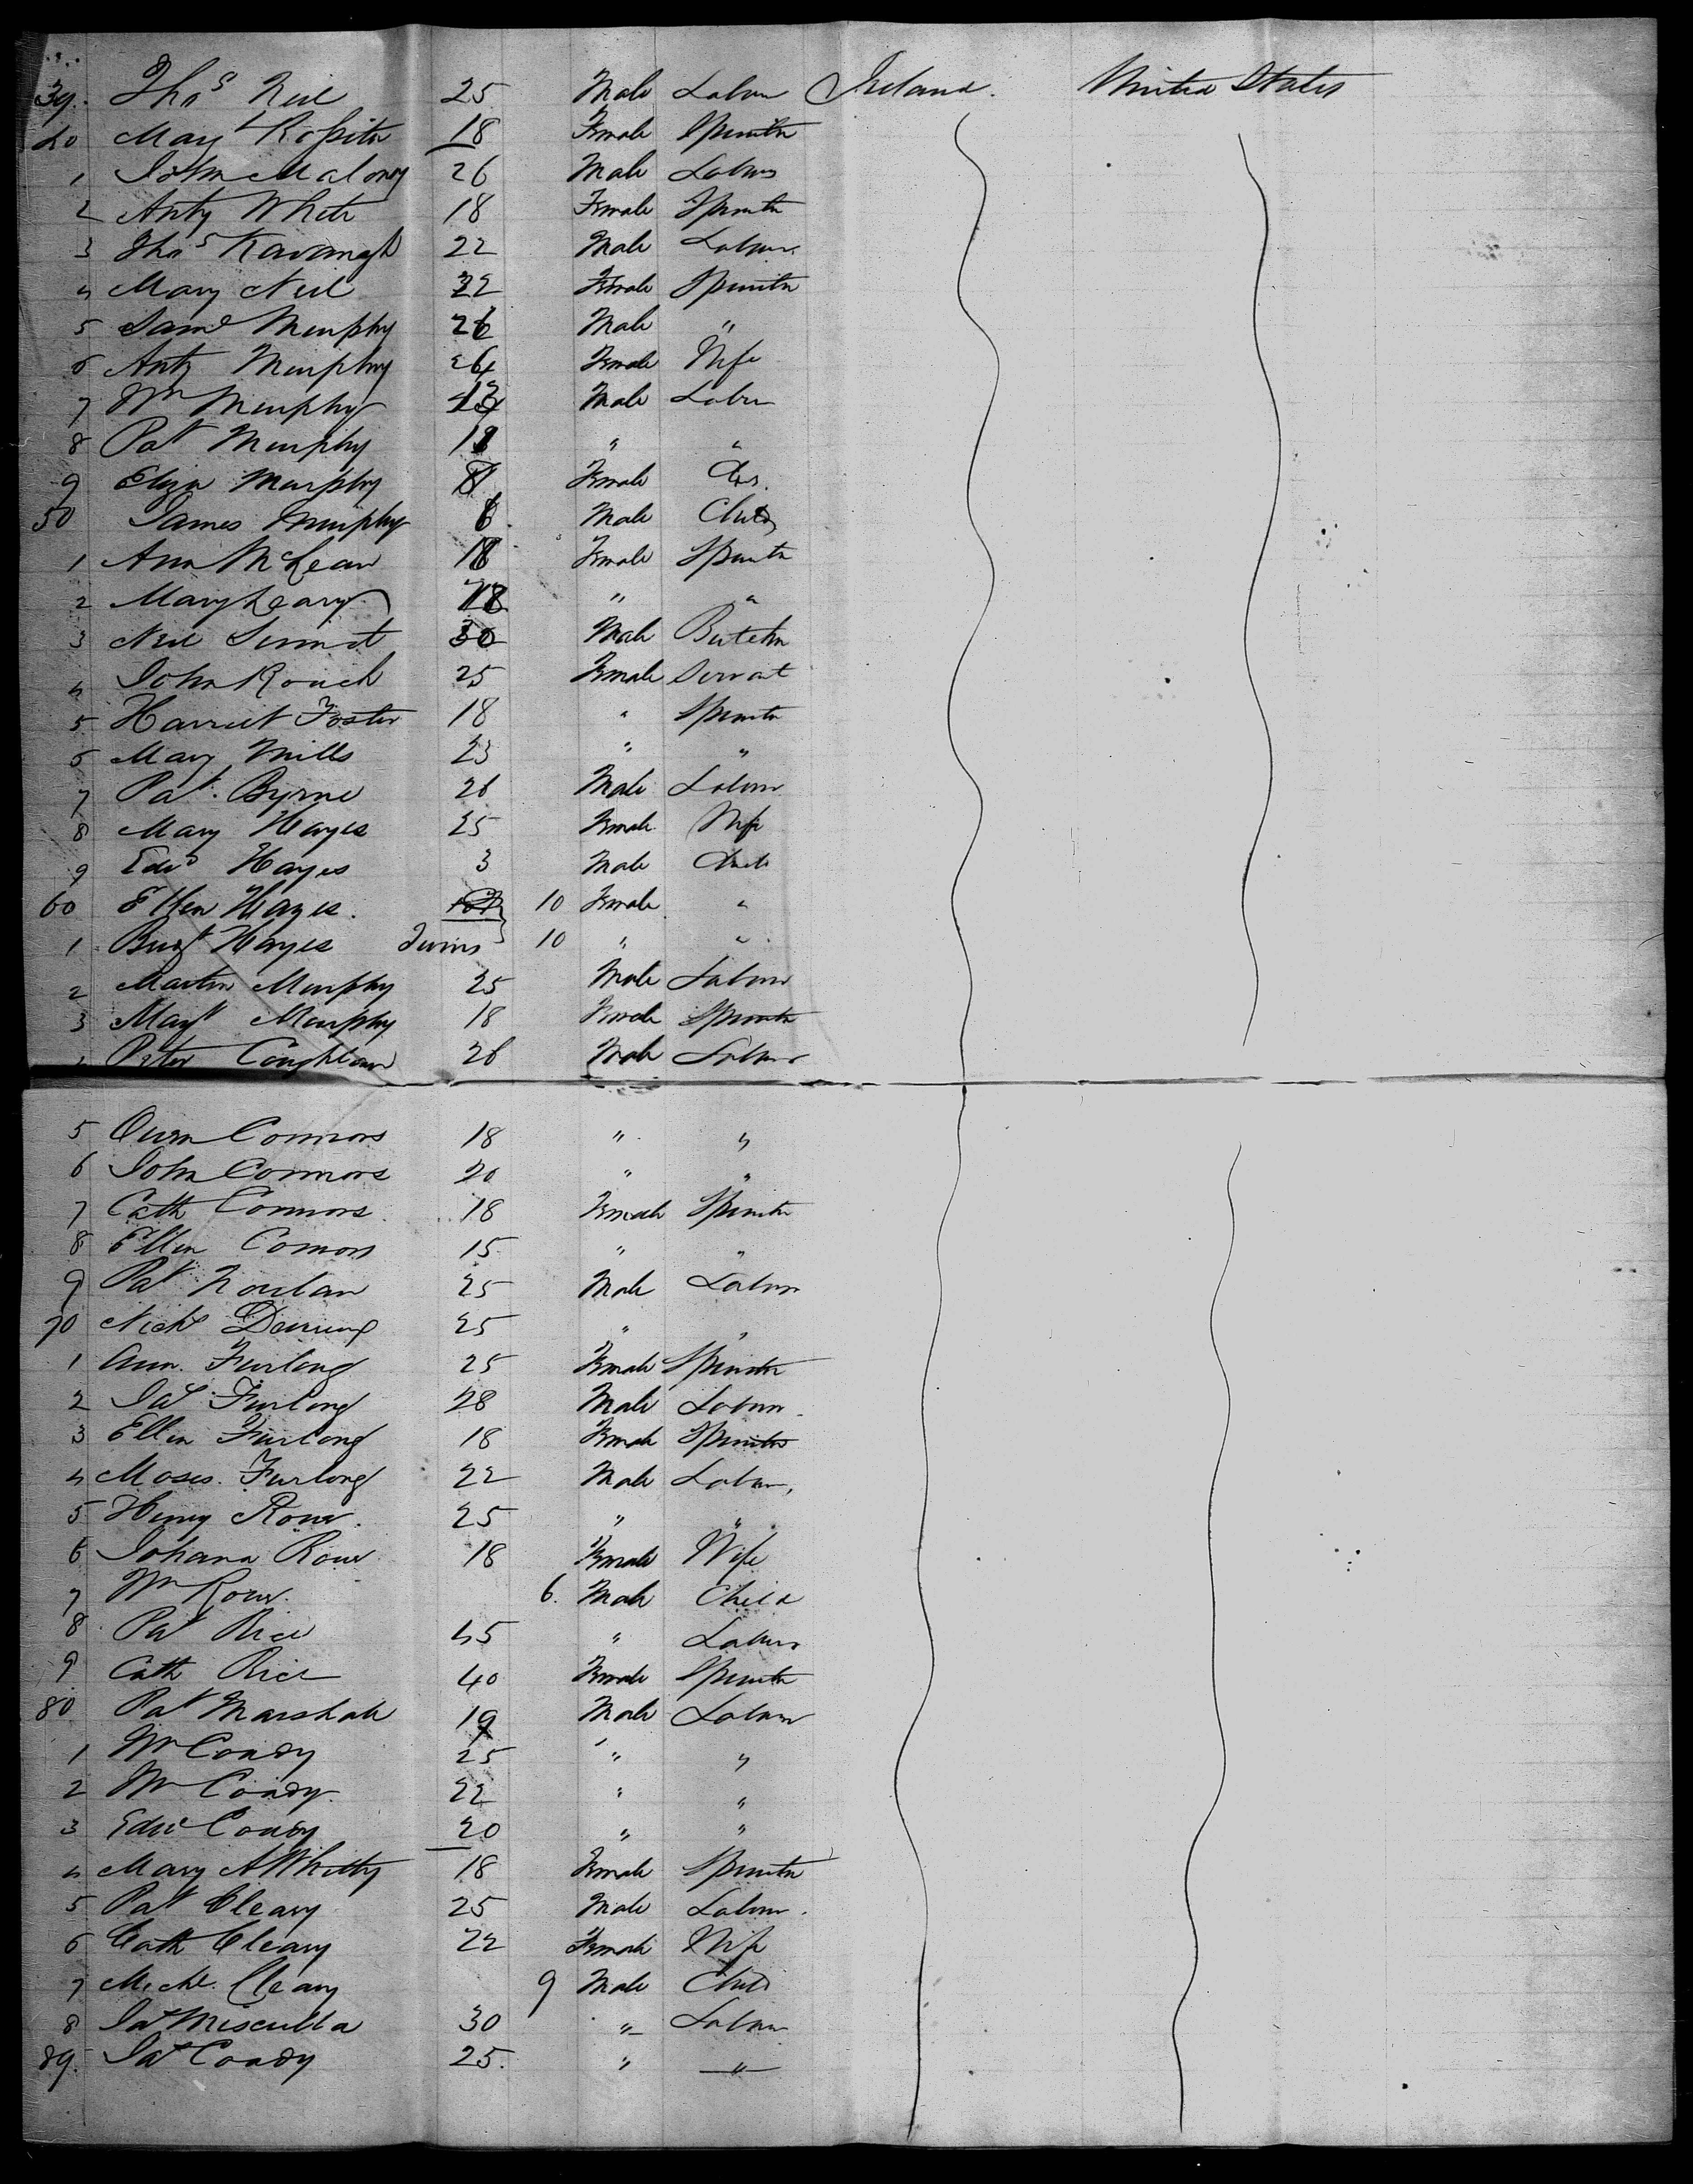 39. Thos Neil 25 Male Labour Ireland. United States
40 Mary Rossiter 18 Female Spinster
1 John Maloney 26 Male Labour
2 Anty White 18 Female Spinster
3 Thos Kavanagh 22 Male Labour
4 Mary Neil 22 Female Spinster
5 Saml Murphy 26 Male "
6 Anty Murphy Female Wife
7 Wm Murphy Male Labour
8 Pat Murphy " "
9 Eliza Murphy Female
50 James Murphy Male Child
1 Ann McLean 18 Female Spinster
2 Mary Leary 18 " "
3 Neil 30 Male Butcher
4 John Roach 25 Female Servant
5 Harriet Foster 18 " Spinster
6 Mary Mills 23 " "
7 Pat. Byrne 26 Male Labour
8 Mary Hayes 25 Female Wife
9 Edwd Hayes 3 Male Child
60 Ellen Hayes. 10 Female "
1 Hayes Twins 10 " "
2 Martin Murphy 25 Male Labour
3 Margt Murphy 18 Female Spinster
4 Peter Coughlan 26 Male Labour
5 Owen Connors 18 " "
6 John Connors 20 " "
7 Cath Connors 18 Female Spinster
8 Ellen Connors 15 " "
9 Pat Noulan 25 Male Labour
70 Nichs 25 " "
1 Ann. Furlong 25 Female Spinster
2 Jas Furlong 28 Male Labour
3 Ellen Furlong 18 Female Spinster
4 Moses. Furlong 22 Male Labour
5 Henry Rowe. 25 " "
6 Johana Rowe 18 Female Wife
7 Wm Rowe. 6. Male Child
8 Pat Rice 45 " Labour
9 Cath Rice 40 Female Spinster
80 Pat Marshall 19 Male Labour
1 Wm Coady 25 " "
2 Wm Coady 22 " "
3 Edwd Coady 20 " "
4 Mary A Whitty 18 Female Spinster
5 Pat Cleary 25 Male Labour.
6 Cath Cleary 22 Female Wife
7 Michl. Cleary 9 Male Child
8 Pat Miscella 30 " Labour
89. Jas Coady 25. " "